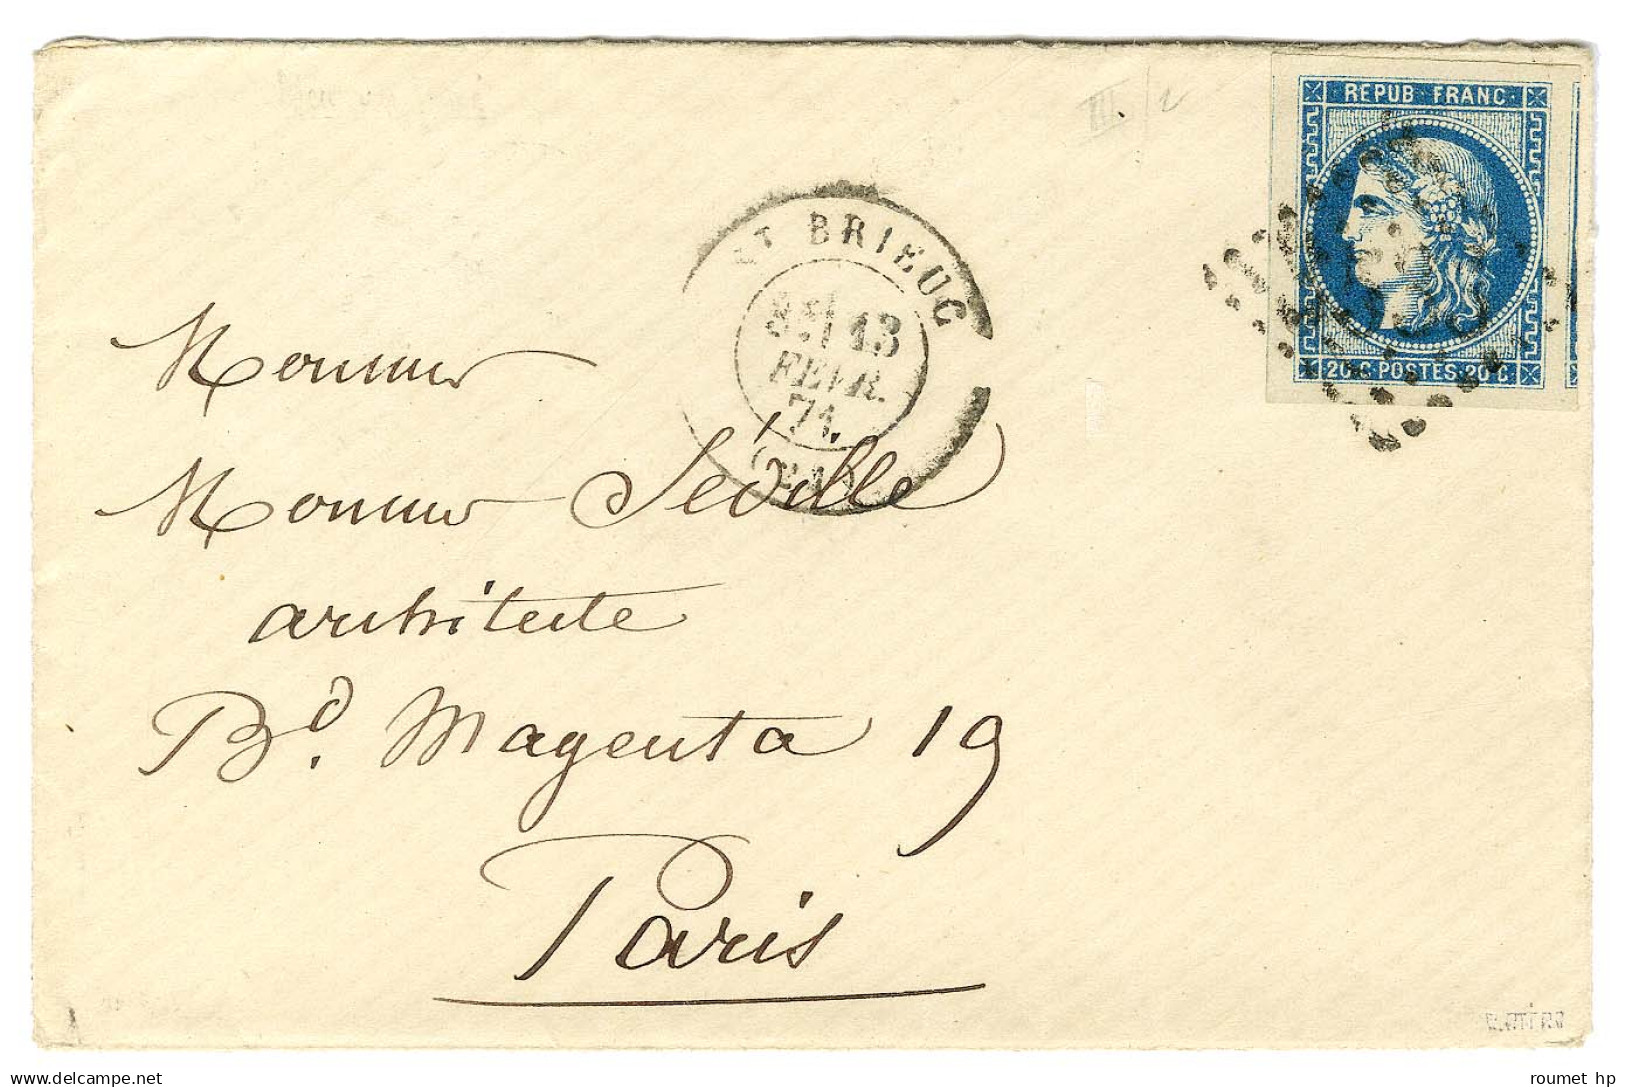 III / 2
REPUB · FRANC ·
20 C · POSTES · 20 C
ST BRIEUC
13
FEVR.
71.
Monsieur
Monsieur Séville
architecte
Bd. Magenta 19
Paris
www.delcampe.net
roumet hp